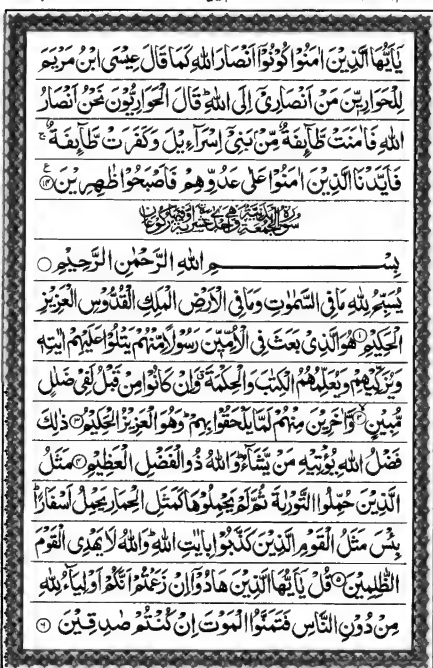 يٰٓاَيُّهَا الَّذِيْنَ اٰمَنُوْا كُوْنُوْٓا اَنْصَارَ اللّٰهِ كَمَا قَالَ عِيْسَى ابْنُ مَرْيَمَ
لِلْحَوَارِيّٖنَ مَنْ اَنْصَارِيْٓ اِلَى اللّٰهِ ؕ قَالَ الْحَوَارِيُّوْنَ نَحْنُ اَنْصَارُ
اللّٰهِ فَاٰمَنَتْ طَّآئِفَةٌ مِّنْۢ بَنِيْٓ اِسْرَآءِيْلَ وَكَفَرَتْ طَّآئِفَةٌ ۚ
فَاَيَّدْنَا الَّذِيْنَ اٰمَنُوْا عَلٰى عَدُوِّهِمْ فَاَصْبَحُوْا ظٰهِرِيْنَ ﴿۱۴﴾
بِسْمِ اللّٰهِ الرَّحْمٰنِ الرَّحِيْمِ ○
يُسَبِّحُ لِلّٰهِ مَا فِي السَّمٰوٰتِ وَمَا فِي الْاَرْضِ الْمَلِكِ الْقُدُّوْسِ الْعَزِيْزِ
الْحَكِيْمِ ﴿۱﴾ هُوَ الَّذِيْ بَعَثَ فِي الْاُمِّيّٖنَ رَسُوْلًا مِّنْهُمْ يَتْلُوْا عَلَيْهِمْ اٰيٰتِهٖ
وَيُزَكِّيْهِمْ وَيُعَلِّمُهُمُ الْكِتٰبَ وَالْحِكْمَةَ ۗ وَاِنْ كَانُوْا مِنْ قَبْلُ لَفِيْ ضَلٰلٍ
مُّبِيْنٍ ﴿۲﴾ وَّاٰخَرِيْنَ مِنْهُمْ لَمَّا يَلْحَقُوْا بِهِمْ ؕ وَهُوَ الْعَزِيْزُ الْحَكِيْمُ ﴿۳﴾ ذٰلِكَ
فَضْلُ اللّٰهِ يُؤْتِيْهِ مَنْ يَّشَآءُ ؕ وَاللّٰهُ ذُو الْفَضْلِ الْعَظِيْمِ ﴿۴﴾ مَثَلُ
الَّذِيْنَ حُمِّلُوا التَّوْرٰىةَ ثُمَّ لَمْ يَحْمِلُوْهَا كَمَثَلِ الْحِمَارِ يَحْمِلُ اَسْفَارًا ؕ
بِئْسَ مَثَلُ الْقَوْمِ الَّذِيْنَ كَذَّبُوْا بِاٰيٰتِ اللّٰهِ ؕ وَاللّٰهُ لَا يَهْدِي الْقَوْمَ
الظّٰلِمِيْنَ ﴿۵﴾ قُلْ يٰٓاَيُّهَا الَّذِيْنَ هَادُوْٓا اِنْ زَعَمْتُمْ اَنَّكُمْ اَوْلِيَآءُ لِلّٰهِ
مِنْ دُوْنِ النَّاسِ فَتَمَنَّوُا الْمَوْتَ اِنْ كُنْتُمْ صٰدِقِيْنَ ﴿۶﴾